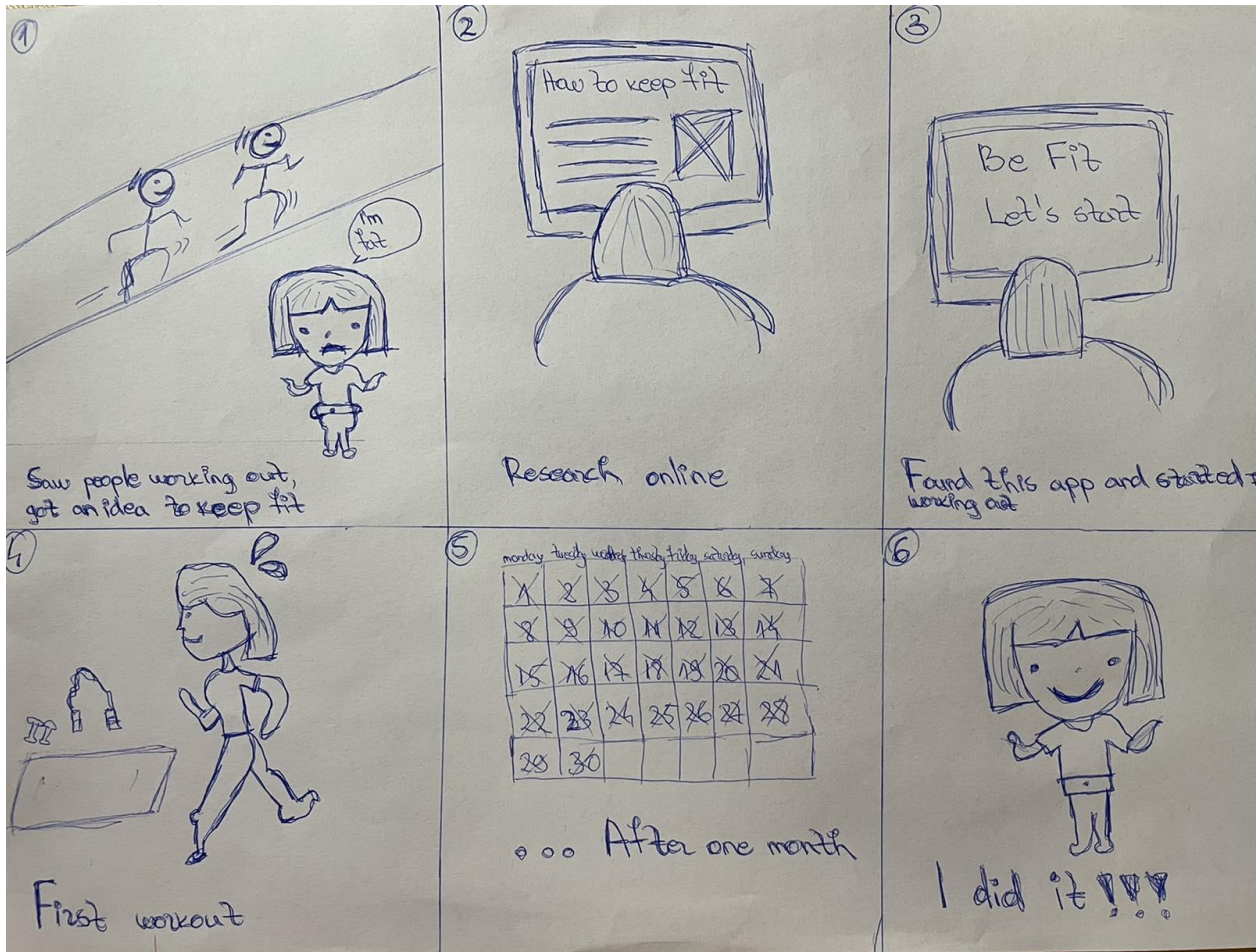 1
I'm
fat
Saw people working out,
got an idea to keep fit
2
How to keep fit
Research online
3
Be Fit
Let's start
Found this app and started
working out
4
First workout
5
monday tuesday thursday friday saturday sunday
1 2 3 4 5 6 7
8 9 10 11 12 13 14
15 16 17 18 19 20 21
22 23 24 25 26 27 28
29 30
... After one month
6
I did it!!!